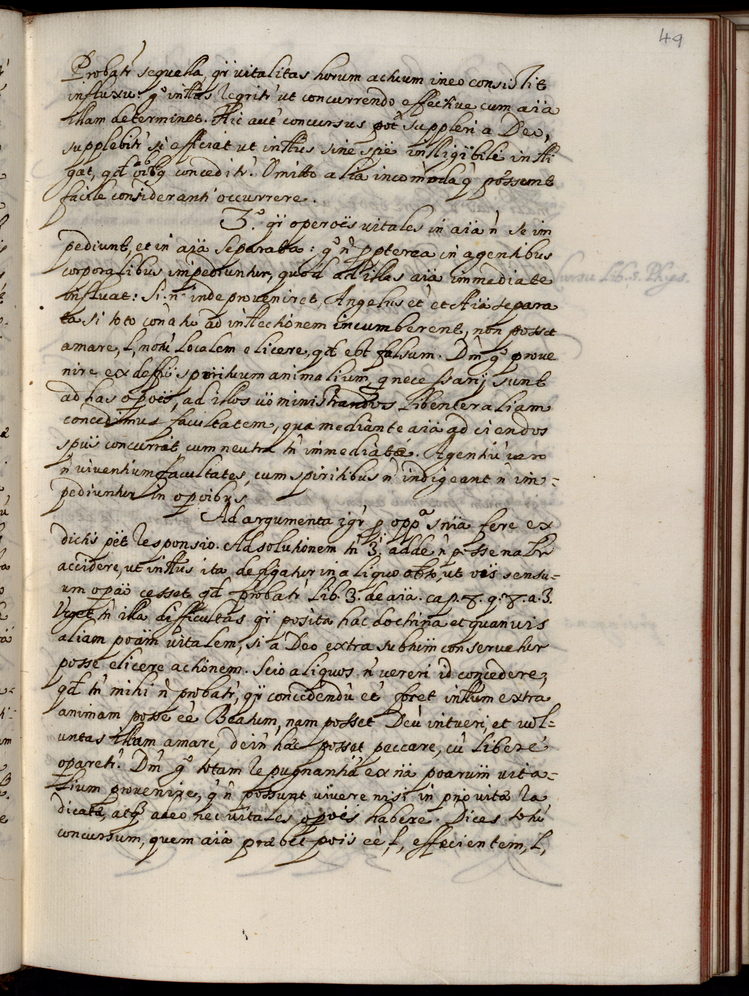 49
Probatr sequella, qa vitalitas horum actuum in eo consistit
influxu: go intlus reqritr ut concurrendo effective cum aia
illam determinet. Hic aut concursus pot suppleri a Deo,
supplebitr si efficiat ut intlus sine spe intligibili intlli
gat, qd ab oibq conceditr. Omitto alia incommoda q possent
facile consideranti occurrere.
3.o qa operões vitales in aia n se im
pediunt, et in aiã separata: go n ppterea in agentibus
corporalibus impediuntur, quod ad illas aia immediate
influat: Si n inde proveniret, Angelus et et Aia separa
ta si toto conatu ad intlectionem incumberent, non posset
amare, l, motu localem elicere, qd est falsum. Dm go prove
nire ex deffu spirituum animalium, q necessarij sunt
ad has opões, ad illos uo ministrandos libenter aliam
concedimus facultatem, qua mediante aia ad ciendos
spus concurrat, cum neutra tn immediate. Agentiu vero
n viventium facultates, cum spiritibus n indigeant n im-
pediuntur in opoibus
Ad argumenta igr p oppa snia fere ex
dictis pët responsio. Ad solutionem tn 3.ij adde n posse natr
accidere, ut intlus ita defigatur in aliquo obto, ut oës sensu-
um opão cesset qd probatr Lib. 3. de aia. cap. 8. q. 8. a. 3.
Urget tn illa difficultas qa posita hac doctrina et quamvis
aliam poam vitalem, si a Deo extra subtum conservetur
posse elicere actionem. Scio aliquos n vereri id concedere,
qd tn mihi n probatr, qa concedendu et foret intlum extra
animam posse ee Beatum, nam posset Deu intueri, et vol-
untas illam amare, dein hac posset peccare, cu libere
oparetr. Dm go totam repugnantia ex na poarum vita-
lium provenire, q n possunt vivere nisi in pno vita ra
dicata, atq adeo nec vitales opoës habere. Dices totu
concursum, quem aia præbet pois ee, l, efficientem, l,